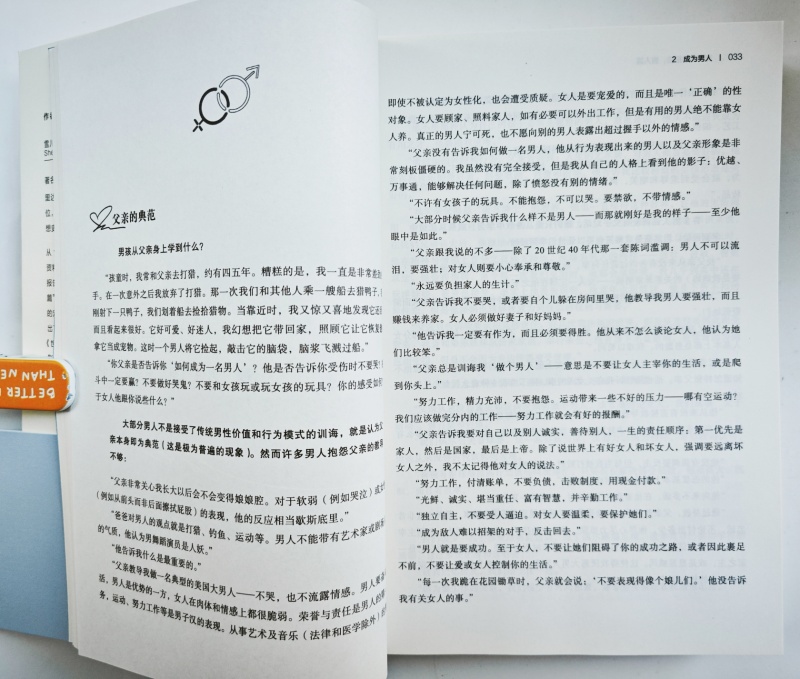 作
雪
She
著名
位，
想
从
资料
报
篇
的
出
BETTER
THAN NE
父亲的典范
男孩从父亲身上学到什么？
“孩童时，我常和父亲去打猎，约有四五年。糟糕的是，我一直是非常差的
手。在一次意外之后我放弃了打猎。那一次我们和其他人乘一艘船去猎鸭子，
刚射下一只鸭子，我们划着船去捡拾猎物。当靠近时，我又惊又喜地发现它还
而且看起来很好。它好可爱、好迷人，我幻想把它带回家，照顾它让它恢复
拿它当成宠物。这时一个男人将它捡起，敲击它的脑袋，脑浆飞溅过船。”
“你父亲是否告诉你‘如何成为一名男人’？他是否告诉你受伤时不要哭？
斗中一定要赢？不要做好哭鬼？不要和女孩玩或玩女孩的玩具？你的感受如
于女人他跟你说些什么？”
大部分男人不是接受了传统男性价值和行为模式的训诲，就是认为父
亲本身即为典范（这是极为普遍的现象）。然而许多男人抱怨父亲的教
不够：
“父亲非常关心我长大以后会不会变得娘娘腔。对于软弱（例如哭泣）或女
（例如从前头而非后面擦拭屁股）的表现，他的反应相当歇斯底里。”
“爸爸对男人的观点就是打猎、钓鱼、运动等。男人不能带有艺术家或
的气质，他认为男舞蹈演员是人妖。”
“他告诉我什么是最重要的。”
“父亲教导我做一名典型的美国大男人——不哭，也不流露情感。男人要
活，男人是优势的一方，女人在肉体和情感上都很脆弱。荣誉与责任是男人的
务，运动、努力工作等是男子汉的表现。从事艺术及音乐（法律和医学除外）的
2 成为男人 | 033
即使不被认定为女性化，也会遭受质疑。女人是要宠爱的，而且是唯一‘正确’的性
对象。女人要顾家、照料家人，如有必要可以外出工作，但是有用的男人绝不能靠女
人养。真正的男人宁可死，也不愿向别的男人表露出超过握手以外的情感。”
“父亲没有告诉我如何做一名男人，他从行为表现出来的男人以及父亲形象是非
常刻板僵硬的。我虽然没有完全接受，但是我从自己的人格上看到他的影子：优越、
万事通，能够解决任何问题，除了愤怒没有别的情绪。”
“不许有女孩子的玩具。不能抱怨，不可以哭。要禁欲，不带情感。”
“大部分时候父亲告诉我什么样不是男人——而那就刚好是我的样子——至少他
眼中是如此。”
“父亲跟我说的不多——除了 20 世纪 40 年代那一套陈词滥调：男人不可以流
泪，要强壮；对女人则要小心奉承和尊敬。”
“永远要负担家人的生计。”
“父亲告诉我不要哭，或者要自个儿躲在房间里哭，他教导我男人要强壮，而且
赚钱来养家。女人必须做好妻子和好妈妈。”
“他告诉我一定要有作为，而且必须要得胜。他从来不怎么谈论女人，他认为她
们比较笨。”
“父亲总是训诲我‘做个男人’——意思是不要让女人主宰你的生活，或是爬
到你头上。”
“努力工作，精力充沛，不要抱怨。运动带来一些不好的压力——哪有空运动？
我们应该做完分内的工作——努力工作就会有好的报酬。”
“父亲告诉我要对自己以及别人诚实，善待别人，一生的责任顺序：第一优先是
家人，然后是国家，最后是上帝。除了说世界上有好女人和坏女人，强调要远离坏
女人之外，我不太记得他对女人的说法。”
“努力工作，付清账单，不要负债，击败制度，用现金付款。”
“光鲜、诚实、堪当重任、富有智慧，并辛勤工作。”
“独立自主，不要受人逼迫。对女人要温柔，要保护她们。”
“成为敌人难以招架的对手，反击回去。”
“男人就是要成功。至于女人，不要让她们阻碍了你的成功之路，或者因此裹足
不前，不要让爱或女人控制你的生活。”
“每一次我跪在花园锄草时，父亲就会说：‘不要表现得像个娘儿们。’他没告诉
我有关女人的事。”